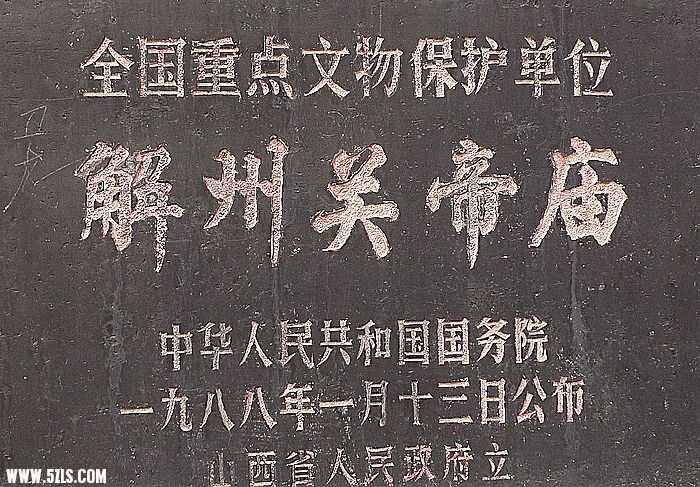 全国重点文物保护单位
解州关帝庙
中华人民共和国国务院
一九八八年一月十三日公布
山西省人民政府立
WWW.5ZLS.COM